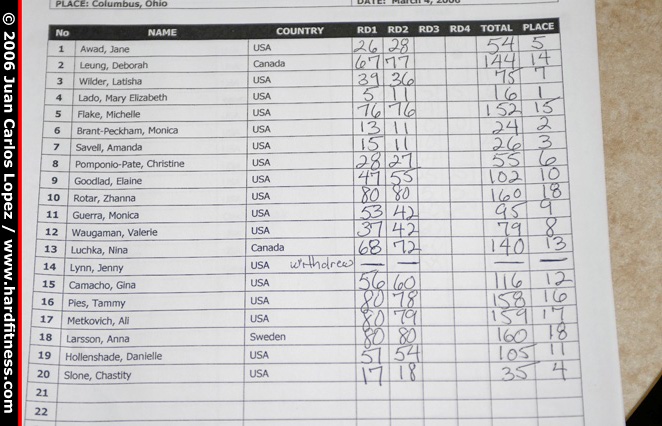 PLACE: Columbus, Ohio DATE: March 4, 2006
No NAME COUNTRY RD1 RD2 RD3 RD4 TOTAL PLACE
1 Awad, Jane USA 26 28 54 5
2 Leung, Deborah Canada 67 77 144 14
3 Wilder, Latisha USA 39 36 75 7
4 Lado, Mary Elizabeth USA 5 11 16 1
5 Flake, Michelle USA 76 76 152 15
6 Brant-Peckham, Monica USA 13 11 24 2
7 Savell, Amanda USA 15 11 26 3
8 Pomponio-Pate, Christine USA 28 27 55 6
9 Goodlad, Elaine USA 47 55 102 10
10 Rotar, Zhanna USA 80 80 160 18
11 Guerra, Monica USA 53 42 95 9
12 Waugaman, Valerie USA 37 42 79 8
13 Luchka, Nina Canada 68 72 140 13
14 Lynn, Jenny USA withdrew — — — —
15 Camacho, Gina USA 56 60 116 12
16 Pies, Tammy USA 80 78 158 16
17 Metkovich, Ali USA 80 79 159 17
18 Larsson, Anna Sweden 80 80 160 18
19 Hollenshade, Danielle USA 51 54 105 11
20 Slone, Chastity USA 17 18 35 4
21
22
© 2006 Juan Carlos Lopez / www.hardfitness.com